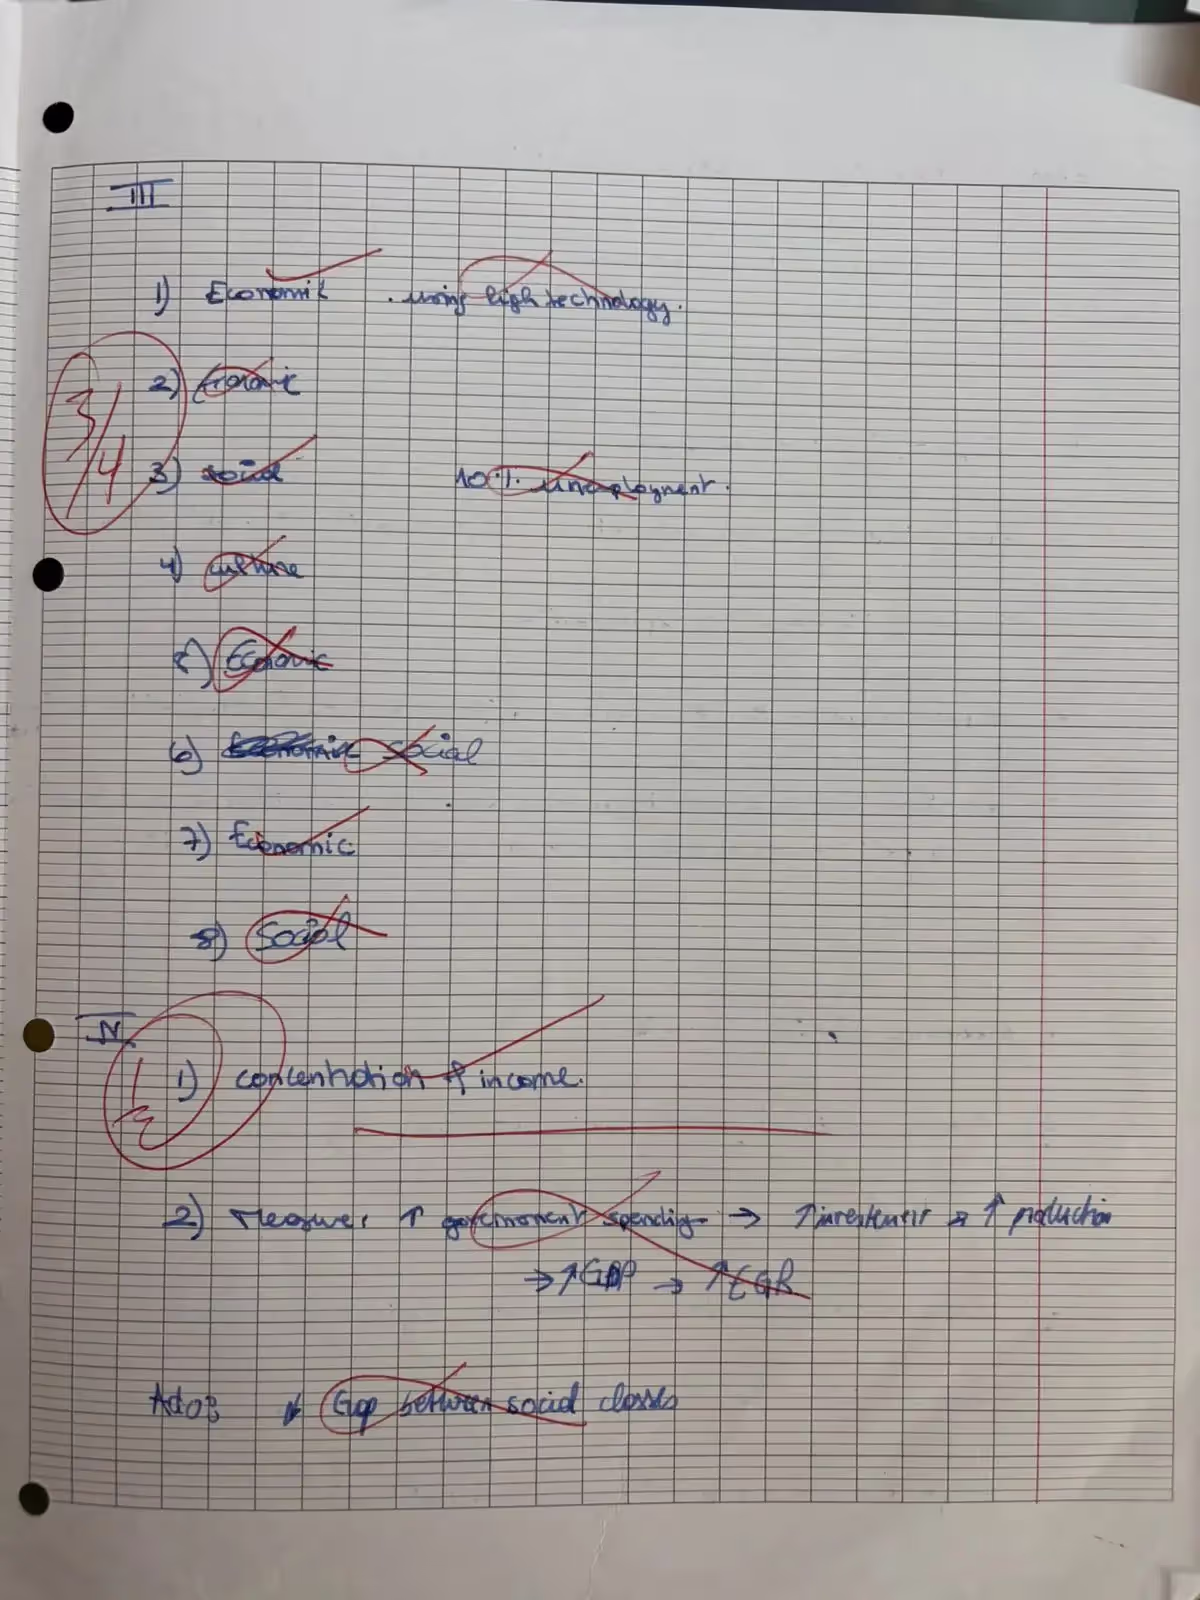 III
1) Economic . using high technology.
2) Economic
3/4
3) social 10% unemployment.
4) culture
5) Economic
6) Economic social
7) Economic
8) Social
IV
1) concentration of income.
2) Measures ↑ government spending → ↑ investment → ↑ production
→ ↑ GDP → ↑ EGR
Gap between social classes